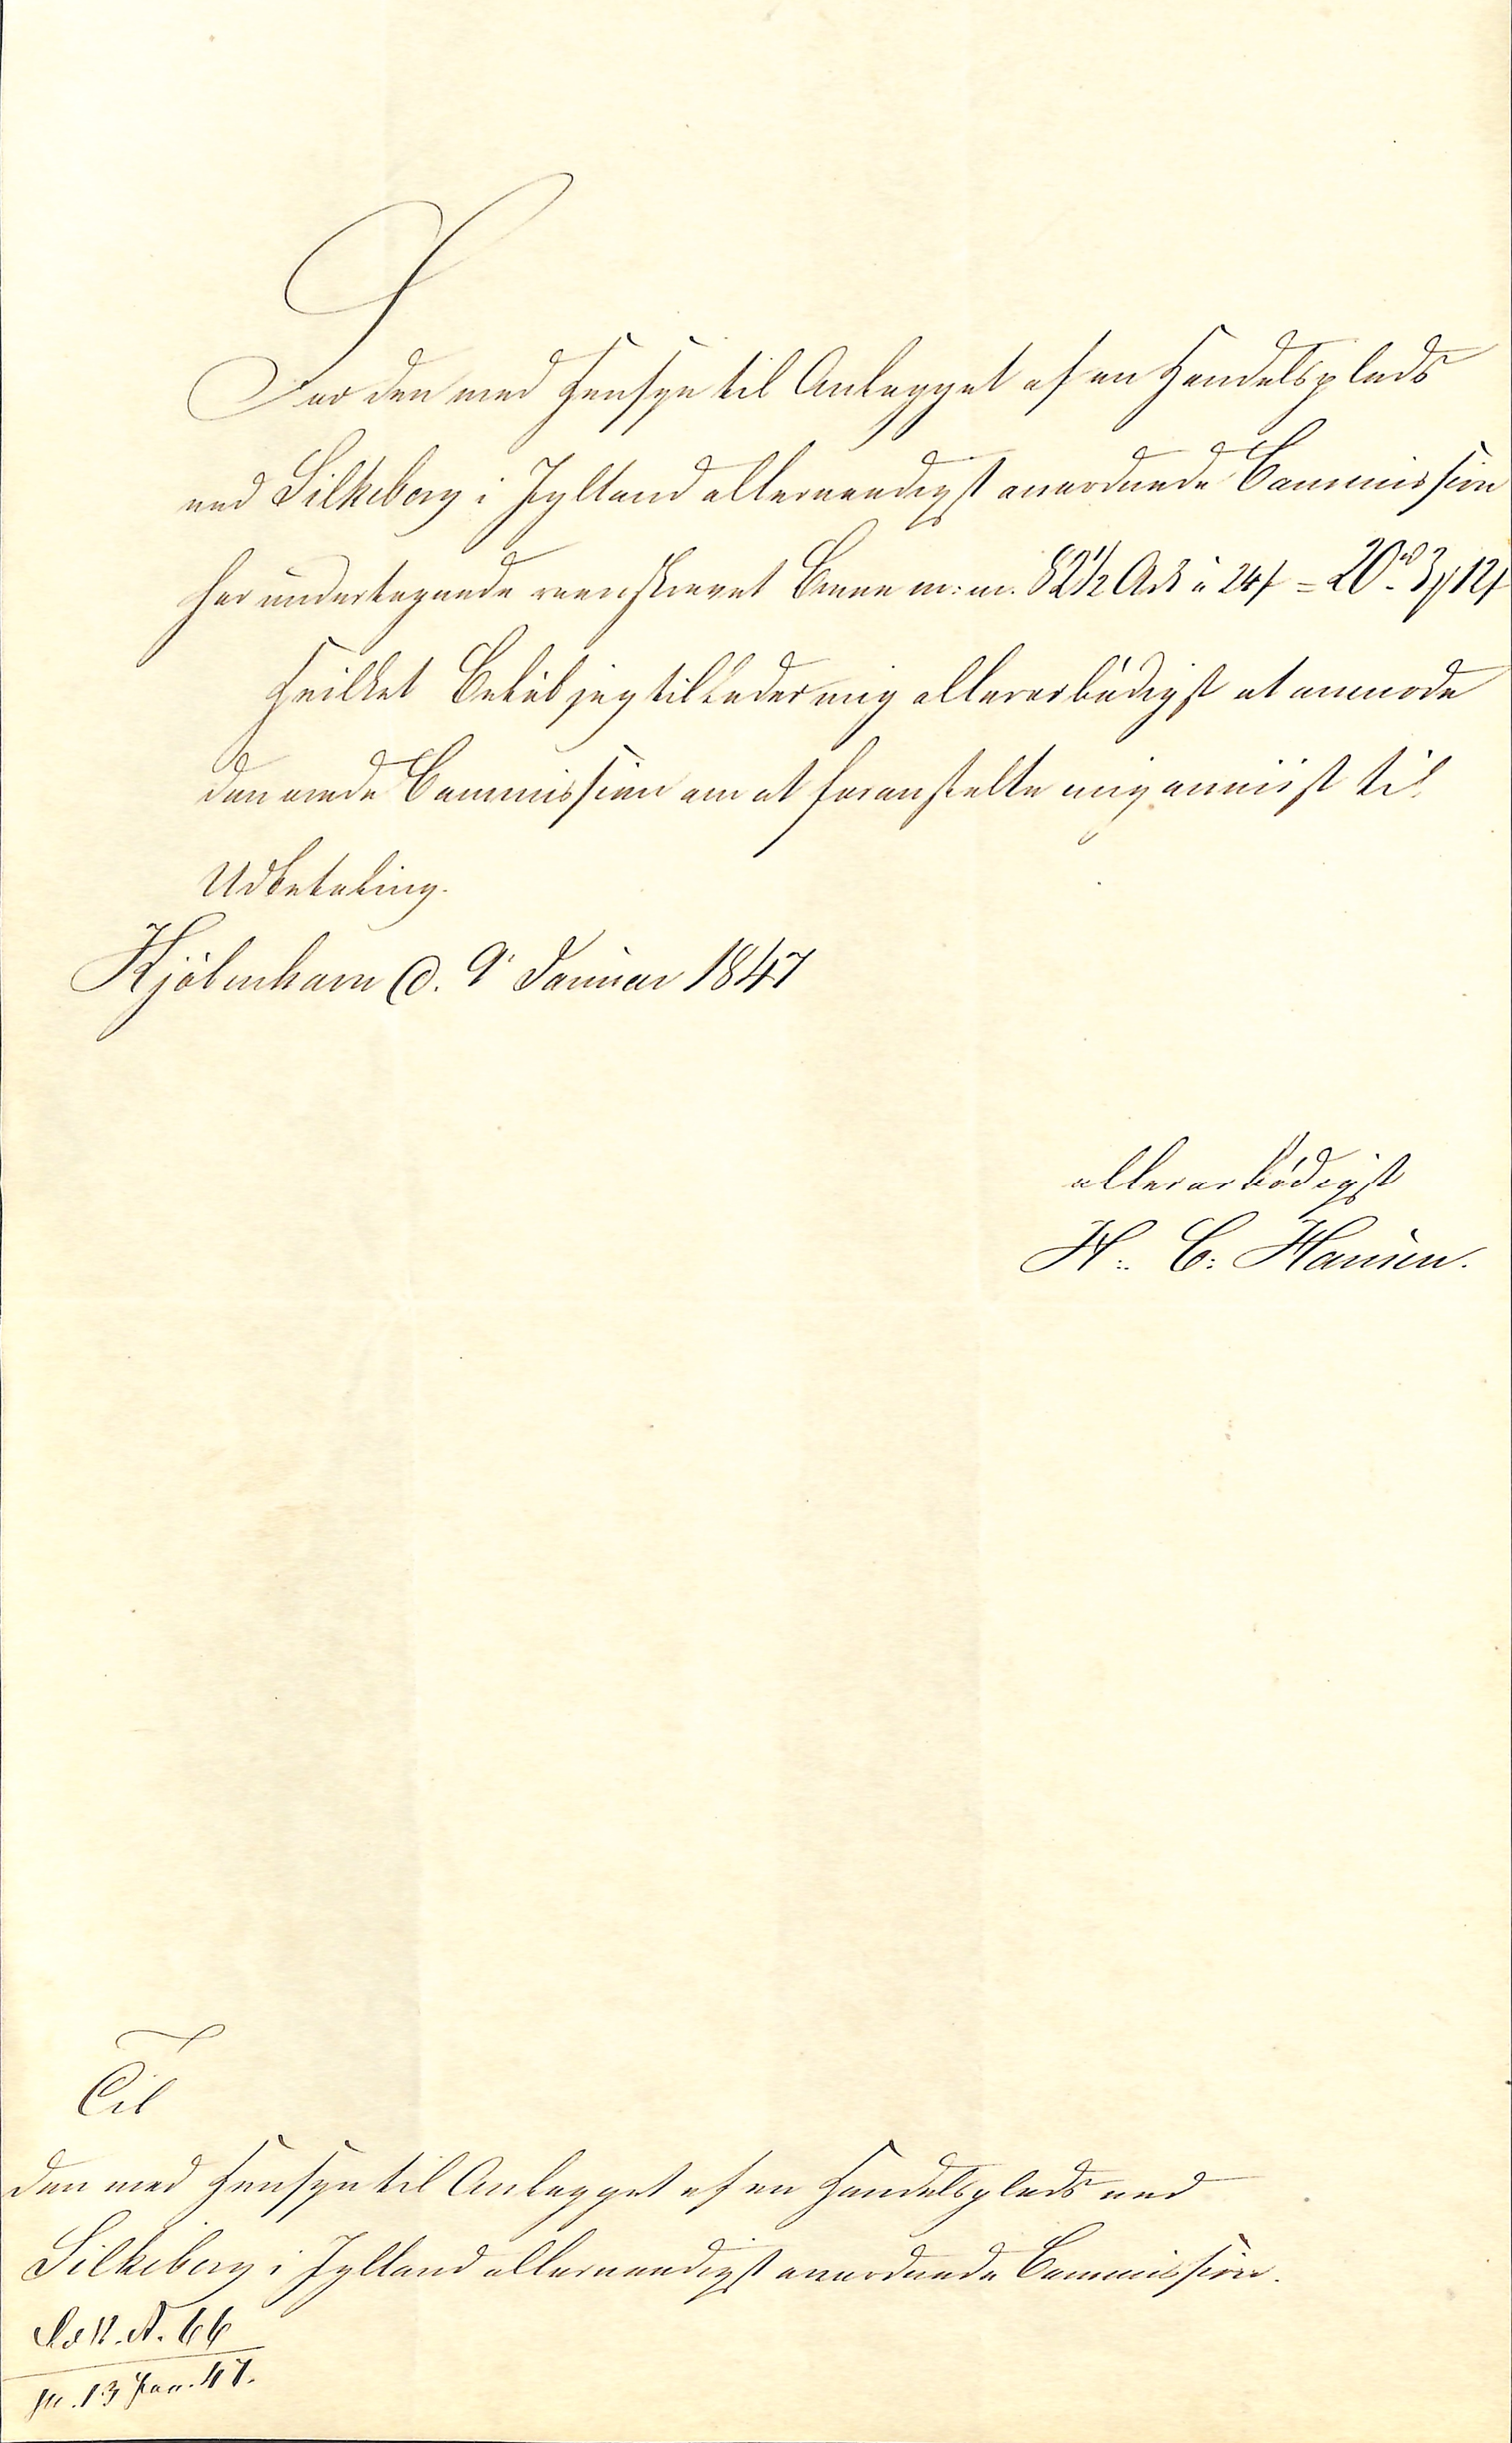 For den med Hensyn til Anlægget af en Handelsplads
ved Silkeborg i Jylland allernaadigst anordnede Commission
har undertegnede reenskrevet Breve m: m. 82½ Ark à 24 ß = 20 rd 3 ½ 12 ß
hvilket Beløb jeg tillader mig allerærbødigst at anmode
den ærede Commission om at foranstalte mig anviist til
Udbetaling.
Kjøbenhavn d. 9' Januar 1847
allerærbødigst
H: C: Hansen.
Til
den med Hensyn til Anlægget af en Handelsplads ved
Silkeborg i Jylland allernaadigst anordnede Commission.
N. 66
pr. 13 Jan. 47.